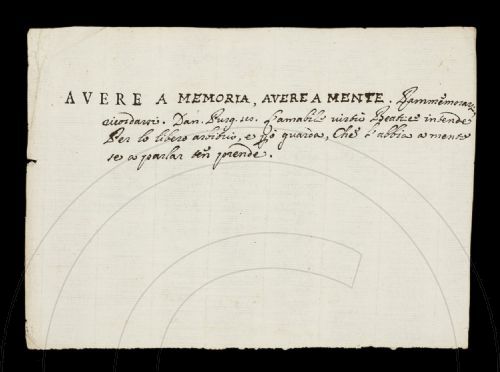 AVERE A MEMORIA, AVERE A MENTE. Rammemorarsi,
ricordarsi. Dan. Purg.
virtù Beatrice intende
Per lo libero arbitrio, e guarda, Che l'abbi a mente
se a parlar ten prende.